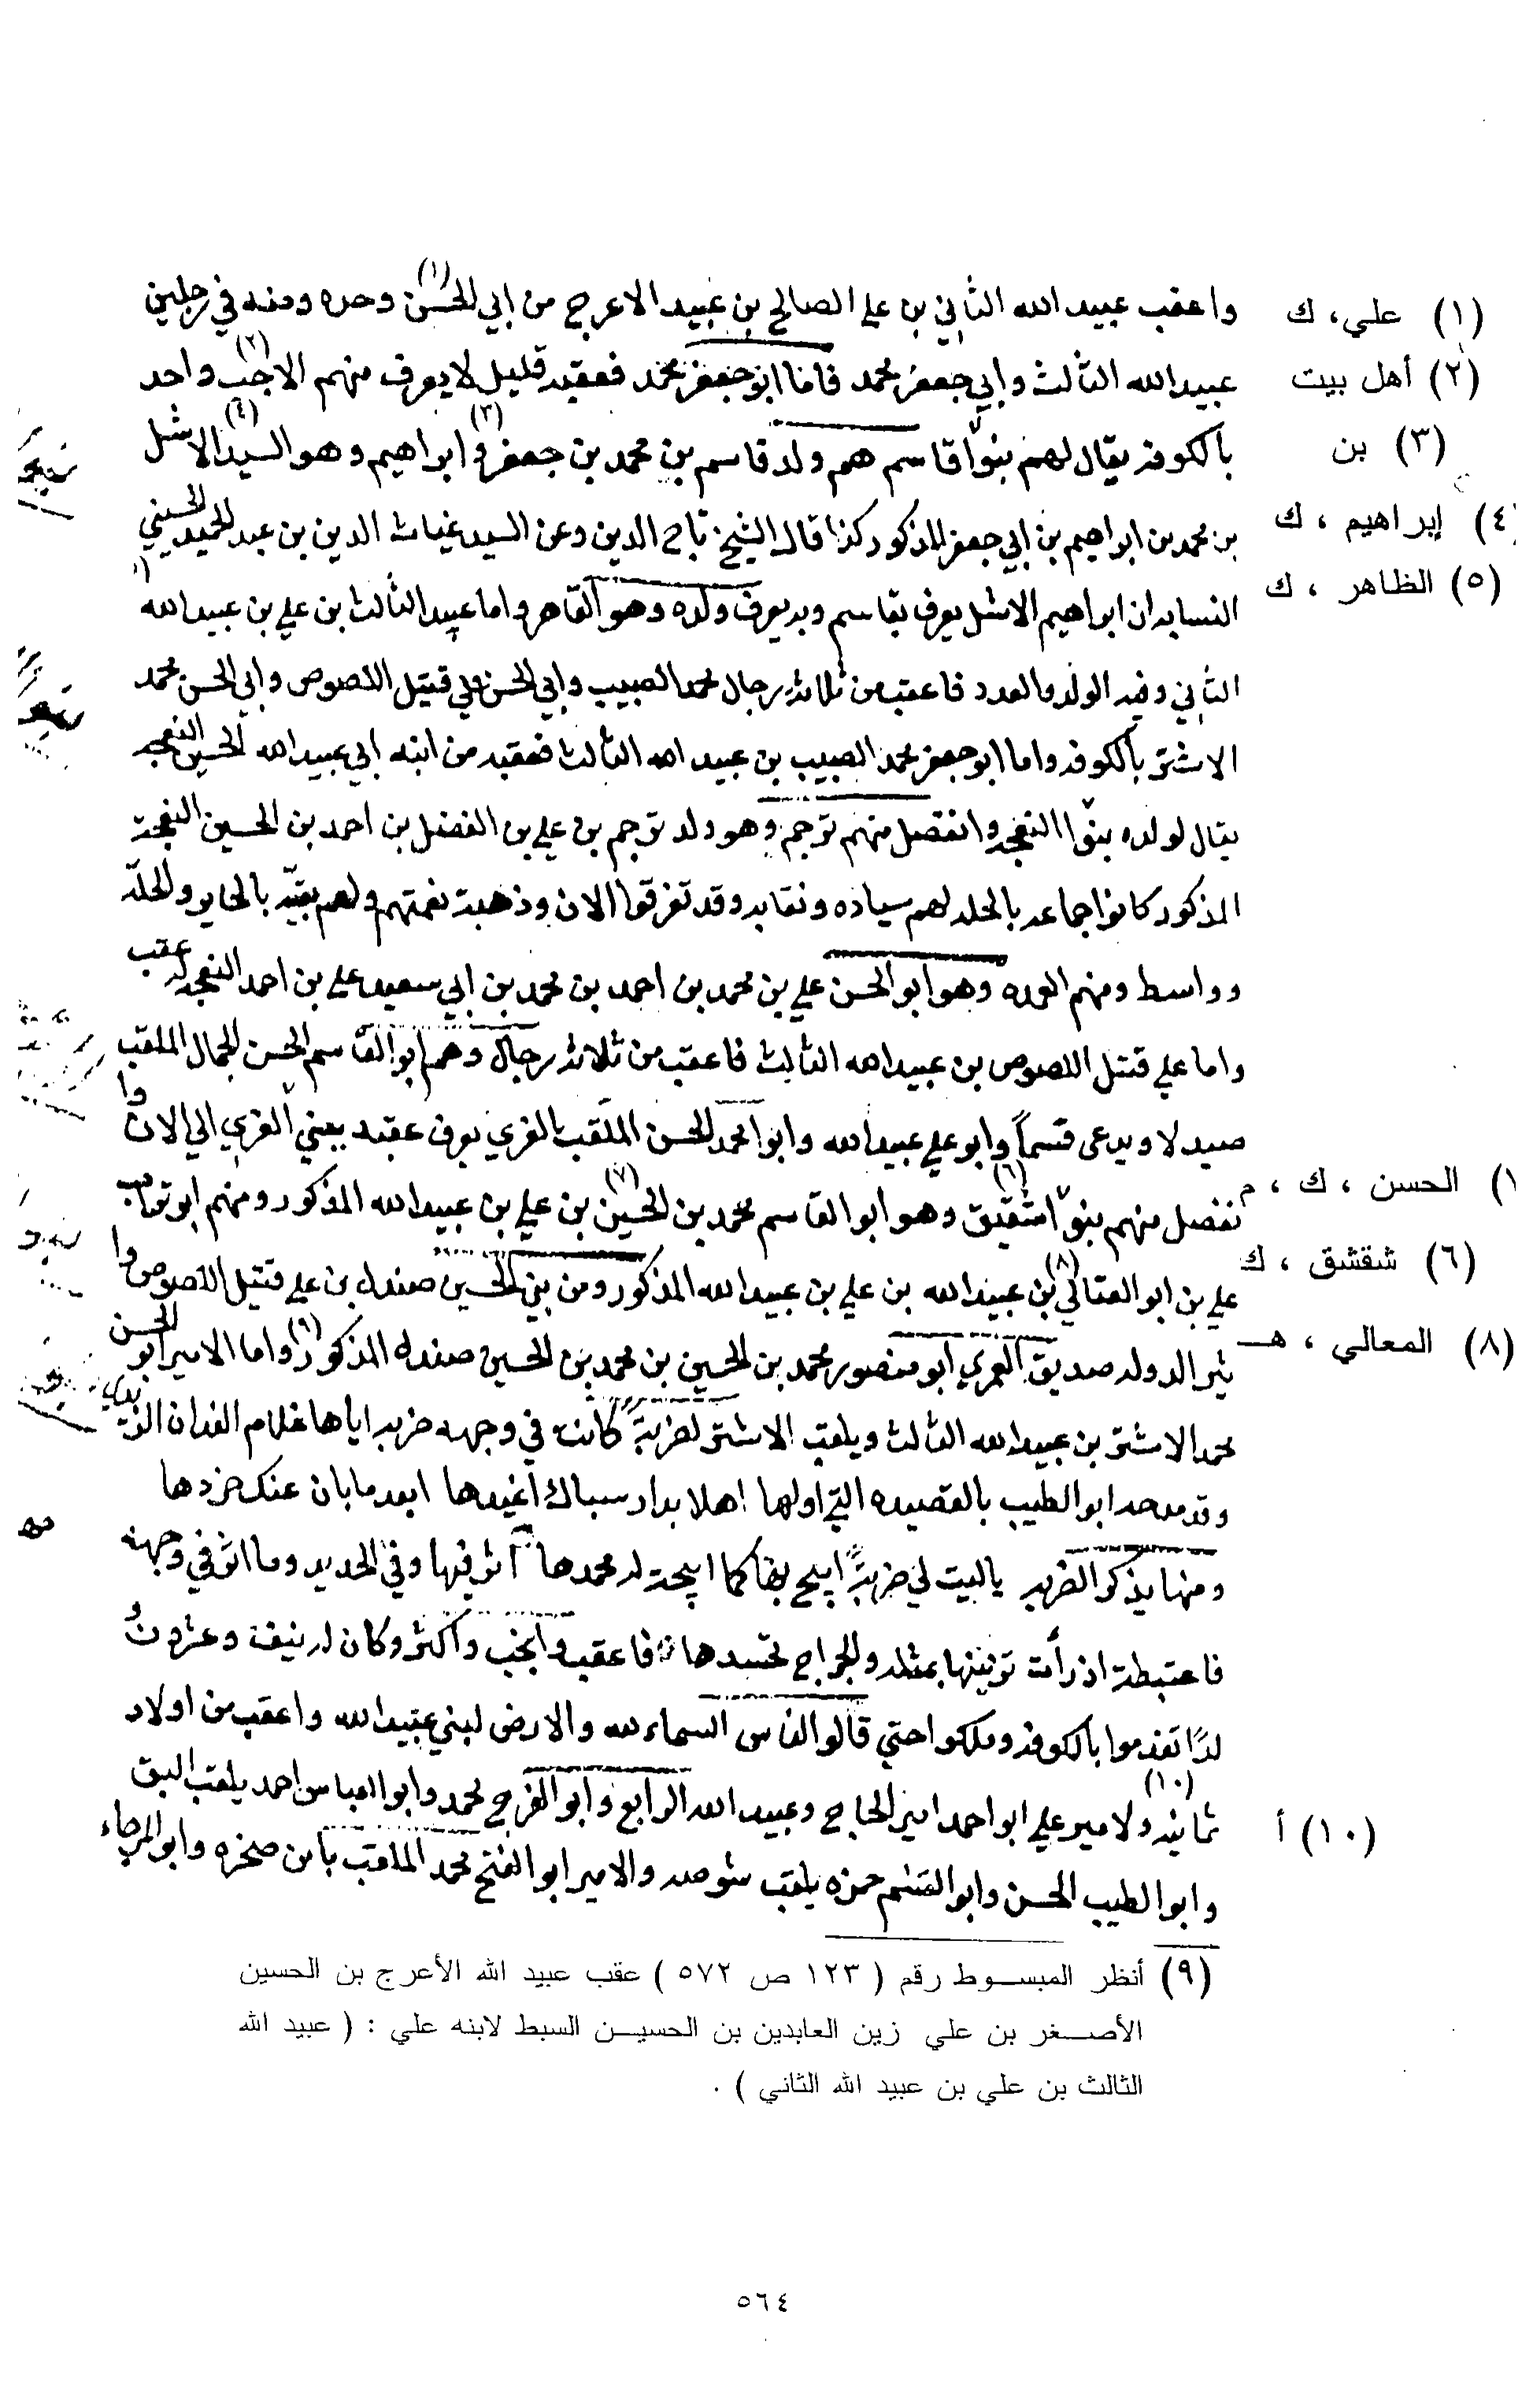 واعقب عبيد الله الثاني بن علي الصالح بن عبيد الاعرج من ابي الحسن (١) وحده ومنه في رجلين
عبيد الله الثالث وابي جعفر محمد فاما ابو جعفر محمد فعقبه قليل لا يعرف منهم الا جب (٢) واحد
بالكوفه يقال لهم بنوا قاسم هم ولد قاسم بن محمد بن جعفر (٣) و ابراهيم وهو السيد (٤) الاشل
بن محمد بن ابراهيم بن ابي جعفر المذكور كذا قال الشيخ تاج الدين وعن السيد غياث الدين بن عبد الحميد الحسيني
النسابه ان ابراهيم الاشل يعرف بقاسم وبه يعرف ولده وهو القاهر واما عبيد الثالث بن علي بن عبيد الله
الثاني وفيه الولد والعدد فاعقب من ثلاثه رجال محمد الصبيب وابي الحسن علي قتيل اللصوص وابي الحسن محمد
الاشتر بالكوفه واما ابو جعفر محمد الصبيب بن عبيد الله الثالث فعقبه من ابنه ابي عبيد الله الحسين النعجه
يقال لولده بنوا النعجه وانفصل منهم ترجم وهو ولد ترجم بن علي بن الفضل بن احمد بن الحسين النعجة
المذكور كانوا جماعه بالحله لهم سياده ونقابه وقد تفرقوا الان وذهبة نعمتهم ولهم بقيّه بالحاير والحلّه
وواسط ومنهم العده وهو ابو الحسن علي بن محمد بن احمد بن محمد بن ابي سعيد علي بن احمد النعجه له عقب
واما علي قتتل اللصوص بن عبيد الله الثالث فاعقب من ثلاثه رجال وهم ابو القاسم الحسن الجمال الملقب
صيد لا ويدعى قسماً وابو علي عبيد الله وابو محمد الحسن الملقب بالغري يعرف عقبه ببني الغري الي الان وا
نفصل منهم بنوا شقيق (٦) وهو ابو القاسم محمد بن الحسين (٧) بن علي بن عبيد الله المذكور ومنهم ابو تراب
علي بن ابو العتالي (٨) بن عبيد الله بن علي بن عبيد الله المذكور ومن بني الحسين صندله بن علي قتيل اللصوص وا
ثير الدوله صديق العمري ابو منصور محمد بن الحسين بن محمد بن الحسين صندله المذكور (٩) واما الامير ابو الحسن
محمد الاشتر بن عبيد الله الثالث ويلقب الاشتر لضربة كانت في وجهه ضربه اياها غلام الفدان
وقد مدحه ابو الطيب بالقصيده التي اولها اهلا بدار سباك اغيدها ابعد ما بان عنك خردها
ومنها يذكر الضربه ياليت لي ضربةً اتيح لها كما اتيحة له محمدها اثر فيها وفي الحديد وما اثر في وجهه
فاعتبطة اذ رأت تزينها بمثله والجراح تحسدها فاعقب وانجب واكثر وكان له نيف وعشرون
لدًا تقدموا بالكوفه وملكوا حتي قالو الناس السماء لله والارض لبني عبيد الله واعقب من اولاد
ثمانيه (١٠) ولامير علي ابو احمد امير الحاج وعبيد الله الرابع وابو الفرج محمد وابو العباس احمد يلقب البق
وابو الطيب الحسن وابو القسم حمزه يلقب شوصه والامير ابو الفتح محمد الملقب بابن صخره وابو المرجاء
(١) علي، ك
(٢) أهل بيت
(٣) بن
(٤) إبراهيم ، ك
(٥) الظاهر ، ك
الحسن ، ك ، م
(٦) شقشق ، ك
(٨) المعالي ، هـ
(١٠) أ
(٩) أنظر المبسوط رقم ( ١٢٣ ص ٥٧٢ ) عقب عبيد الله الأعرج بن الحسين
الأصغر بن علي زين العابدين بن الحسين السبط لابنه علي : ( عبيد الله
الثالث بن علي بن عبيد الله الثاني ) .
٥٦٤